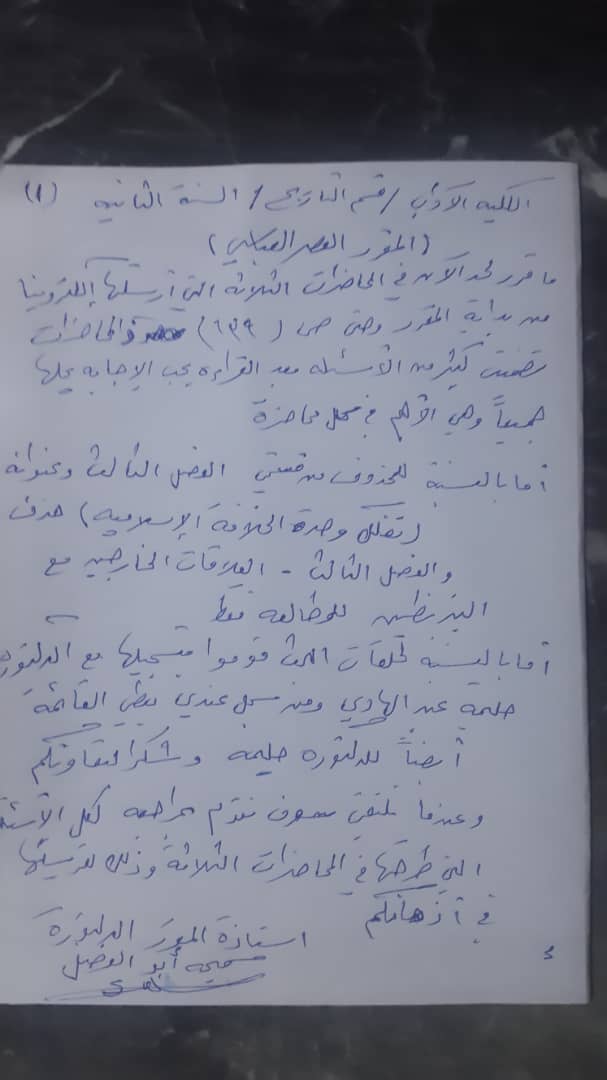 الكلية الآداب / قسم التاريخ / السنة الثانية (١)
(المقرر العصر العباسي)
ما قرر لحد الآن في المحاضرات الثلاثة التي أرسلتها إلكترونيا
من بداية المقرر وحتى ص (١٣٩) والمحاضرات
تضمنت كثير من الأسئلة بعد القراءة يجب الإجابة عليها
جميعاً وهي الأهم في كل محاضرة
أما بالنسبة للمحذوف من الفصل الثالث وعنوانه
(تفكك وحدة الخلافة الإسلامية) حذف
والفصل الثالث - العلاقات الخارجية مع
البيزنطيين للمطالعة فقط
أما بالنسبة لحلقات البحث قوموا بتسجيلها مع الدكتورة
حليمة عبد الهادي ومن سجل عندي يعطي القائمة
أيضاً للدكتورة حليمة وشكراً لتعاونكم
وعندما نلتقي سوف نقوم بمراجعة لكل الأسئلة
التي طرحتها في المحاضرات الثلاثة وذلك لترسيخها
في أذهانكم
استاذة المقرر الدكتورة
سميحة أبو الفضل